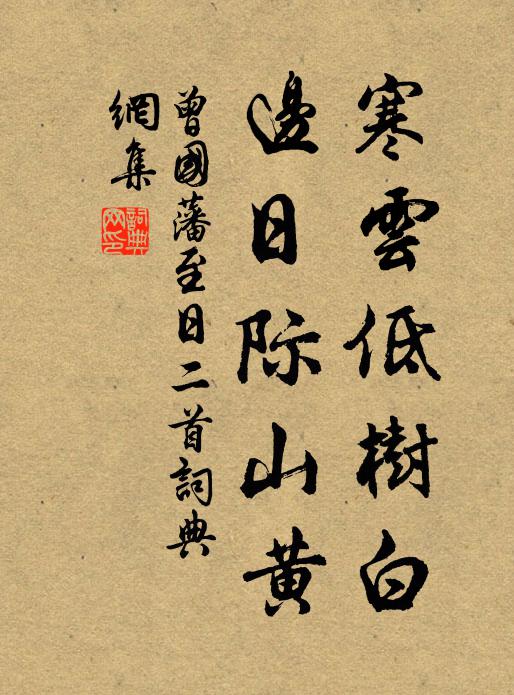 寒雲低樹白
邊日际山黄
曾國藩至日二首詞典
網集
詞典
网印